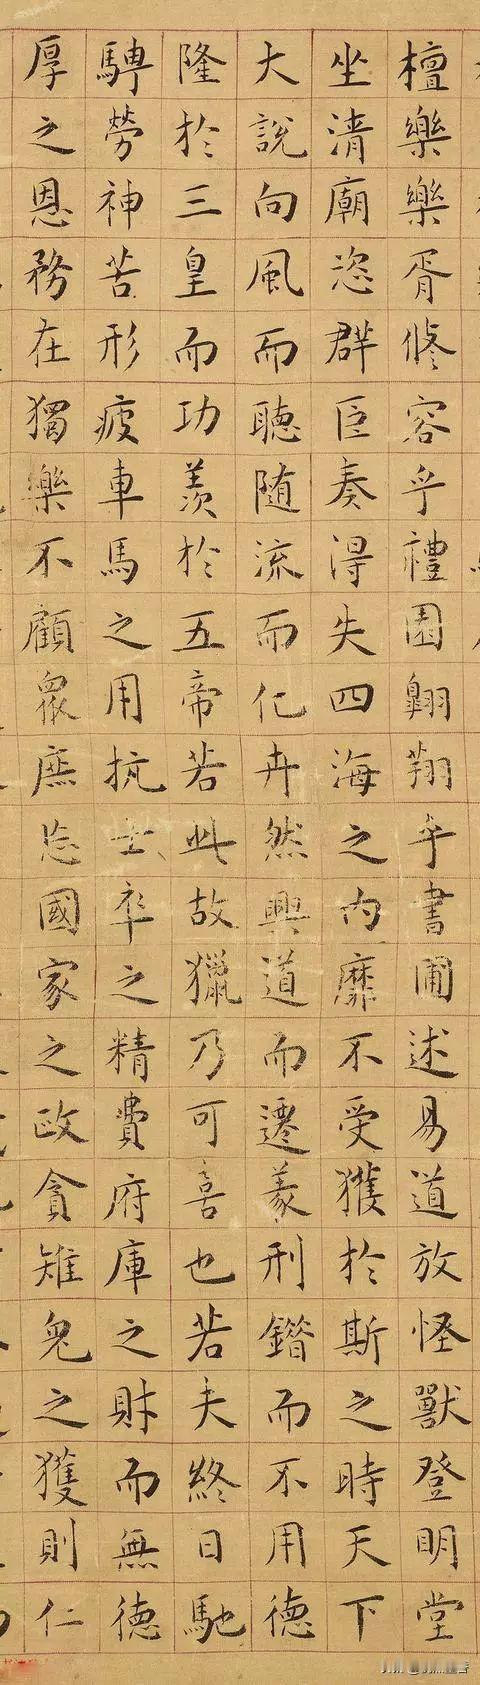 檀樂樂胥修容乎禮園翱翔乎書圃述易道放怪獸登明堂
坐清廟恣群臣奏得失四海之內靡不受獲於斯之時天下
大說向風而聽随流而化卉然興道而遷義刑錯而不用德
隆於三皇而功羨於五帝若此故獵乃可喜也若夫終日馳
騁勞神苦形疲車馬之用抗士卒之精費府庫之財而無德
厚之恩務在獨樂不顧眾庶忘國家之政貪雉兔之獲則仁